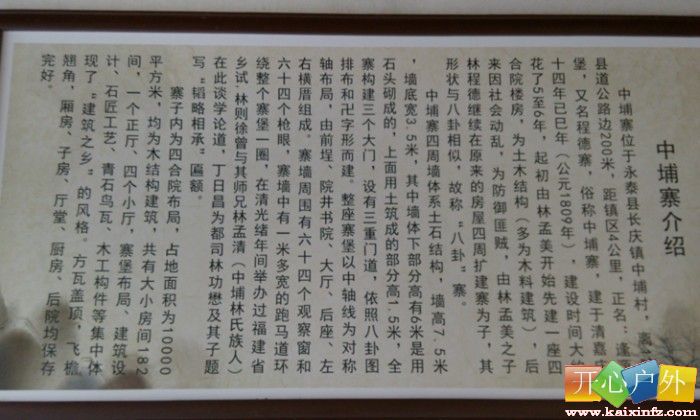 中埔寨介绍
中埔寨位于永泰县长庆镇中埔村，离
县道公路边200米，距镇区4公里，正名：逢
堡，又名程德寨，俗称中埔寨，建于清嘉
十四年己巳年（公元1809年），建设时间大
花了5至6年，起初由林孟美开始先建一座四
合院楼房，为土木结构（多为木料建筑），后
来因社会动乱，为防御匪贼，由林孟美之子
林程德继续在原来的房屋四周扩建寨为子，其
形状与八卦相似，故称“八卦”寨。
中埔寨四周墙体系土石结构，墙高7.5米
，墙底宽3.5米，其中墙体下部分高有6米是用
石头砌成的，上面用土筑成的部分高1.5米，全
寨构建三个大门，设有三重门道，依照八卦图
排布和卍字形而建。整座寨堡以中轴线为对称
轴布局，由前埕、院井书院、大厅、后座、左
右横厝组成。寨墙周围有六十四个观察窗和
六十四个枪眼，寨墙中有一米多宽的跑马道环
绕整个寨堡一圈，在清光绪年间举办过福建省
乡试.林则徐曾与其师兄林孟清（中埔林氏族人）
在此谈学论道，丁日昌为都司林功懋及其子题
写“韬略相承”匾额。
寨子内为四合院布局，占地面积为10000
平方米，均为木结构建筑，共有大小房间182
间，一个正厅、四个小厅，寨堡布局、建筑设
计、石匠工艺、青石鸟瓦、木工构件等集中体
现了“建筑之乡”的风格。方瓦盖顶，飞檐
翘角，厢房、子房、厅堂、厨房、后院均保存
完好。
开心户外
www.kaixinfz.com